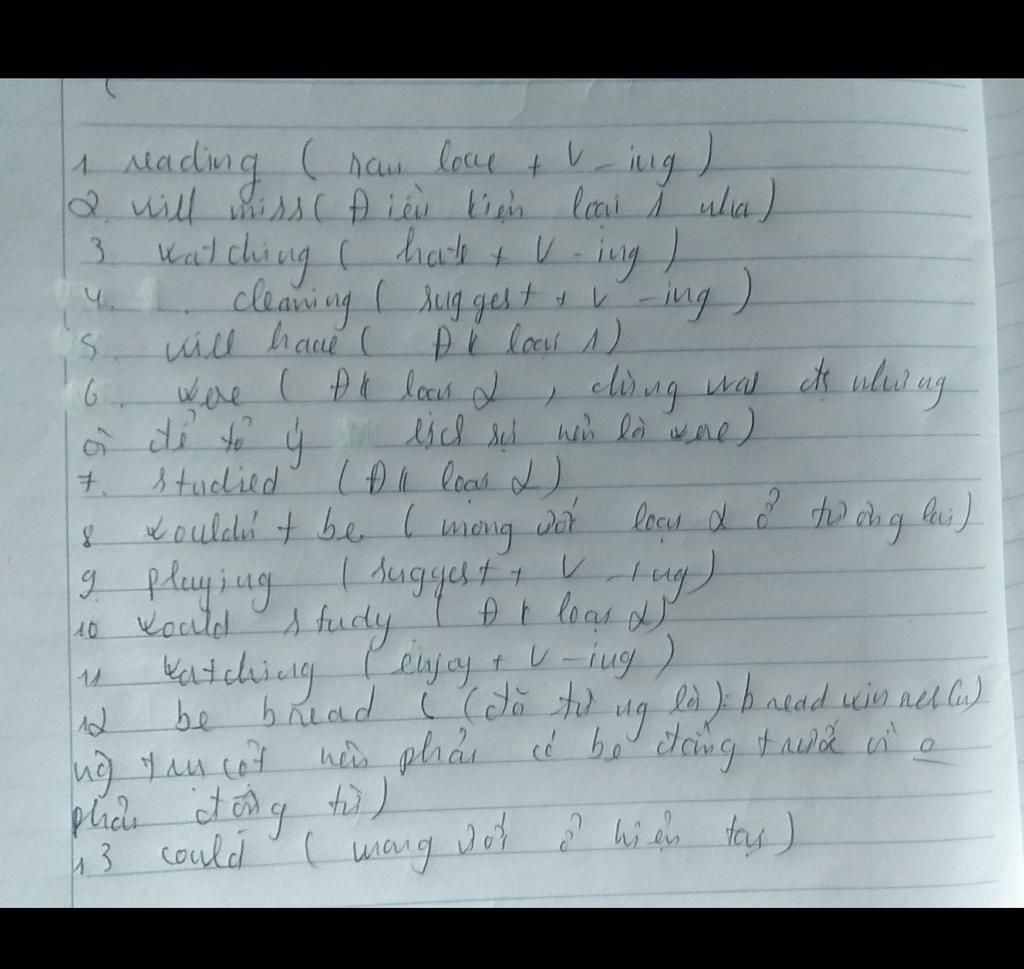 1 reading ( sau love + V-ing )
2 will miss ( Điều kiện loại 1 nha )
3. watching ( hate + V-ing )
4. cleaning ( suggest + V-ing )
5. will have ( ĐK loại 1 )
6. were ( ĐK loại 2 , dùng was đc nhưng
ở để tỏ ý lịch sự nên là were )
7. studied ( ĐK loại 2 )
8 wouldn't be ( mong ước loại 2 ở tương lai )
9. playing ( suggest + V-ing )
10 would study ( ĐK loại 2 )
11 watching ( enjoy + V-ing )
12 be bread ( (đó từ ng là): bread winner (n)
ng trụ cột nên phải có be đằng trước vì o
phải động từ )
13 could ( mong ước ở hiện tại )